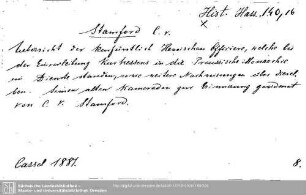 Hist. Hass. 140, 16
Stamford C. v.
Uebersicht der kurfürstlich Hessischen Offiziere, welche bei
der Einverleibung Kurhessens in die Preussische Monarchie
im Dienste standen, nebst weitere Nachweisungen über diesel-
ben. Seinen alten Kameraden zur Erinnerung gewidmet
von C. v. Stamford.
Cassel 1881.
8.